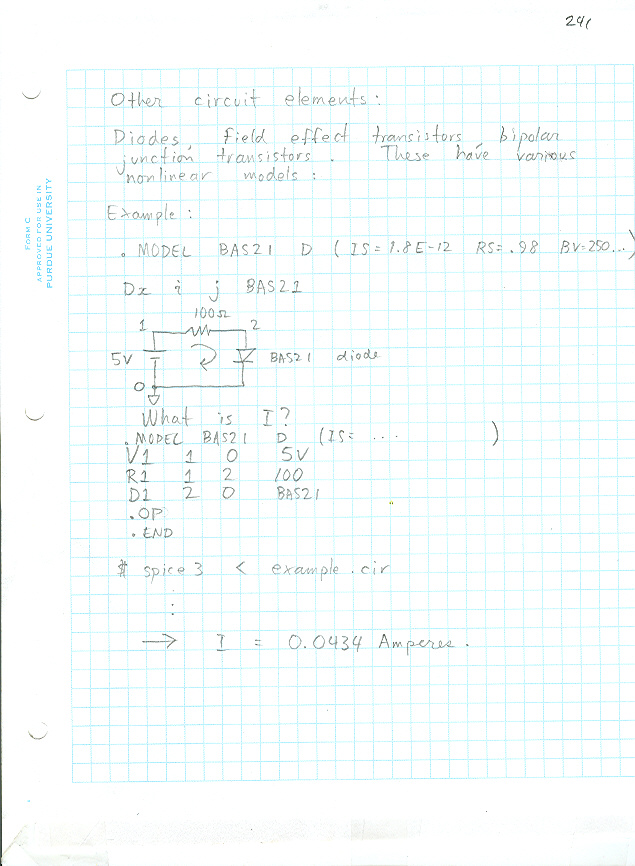 241
Other circuit elements:
Diodes, Field effect transistors, bipolar
junction transistors. These have various
nonlinear models:
Example:
.MODEL BAS21 D (IS=1.8E-12 RS=.98 BV=250...)
Dx i j BAS21
100Ω
1 2
5V
BAS21 diode
0
What is I?
.MODEL BAS21 D (IS= ... )
V1 1 0 5V
R1 1 2 100
D1 2 0 BAS21
.OP
.END
$ spice3 < example.cir
:
:
→ I = 0.0434 Amperes.
FORM C
APPROVED FOR USE IN
PURDUE UNIVERSITY